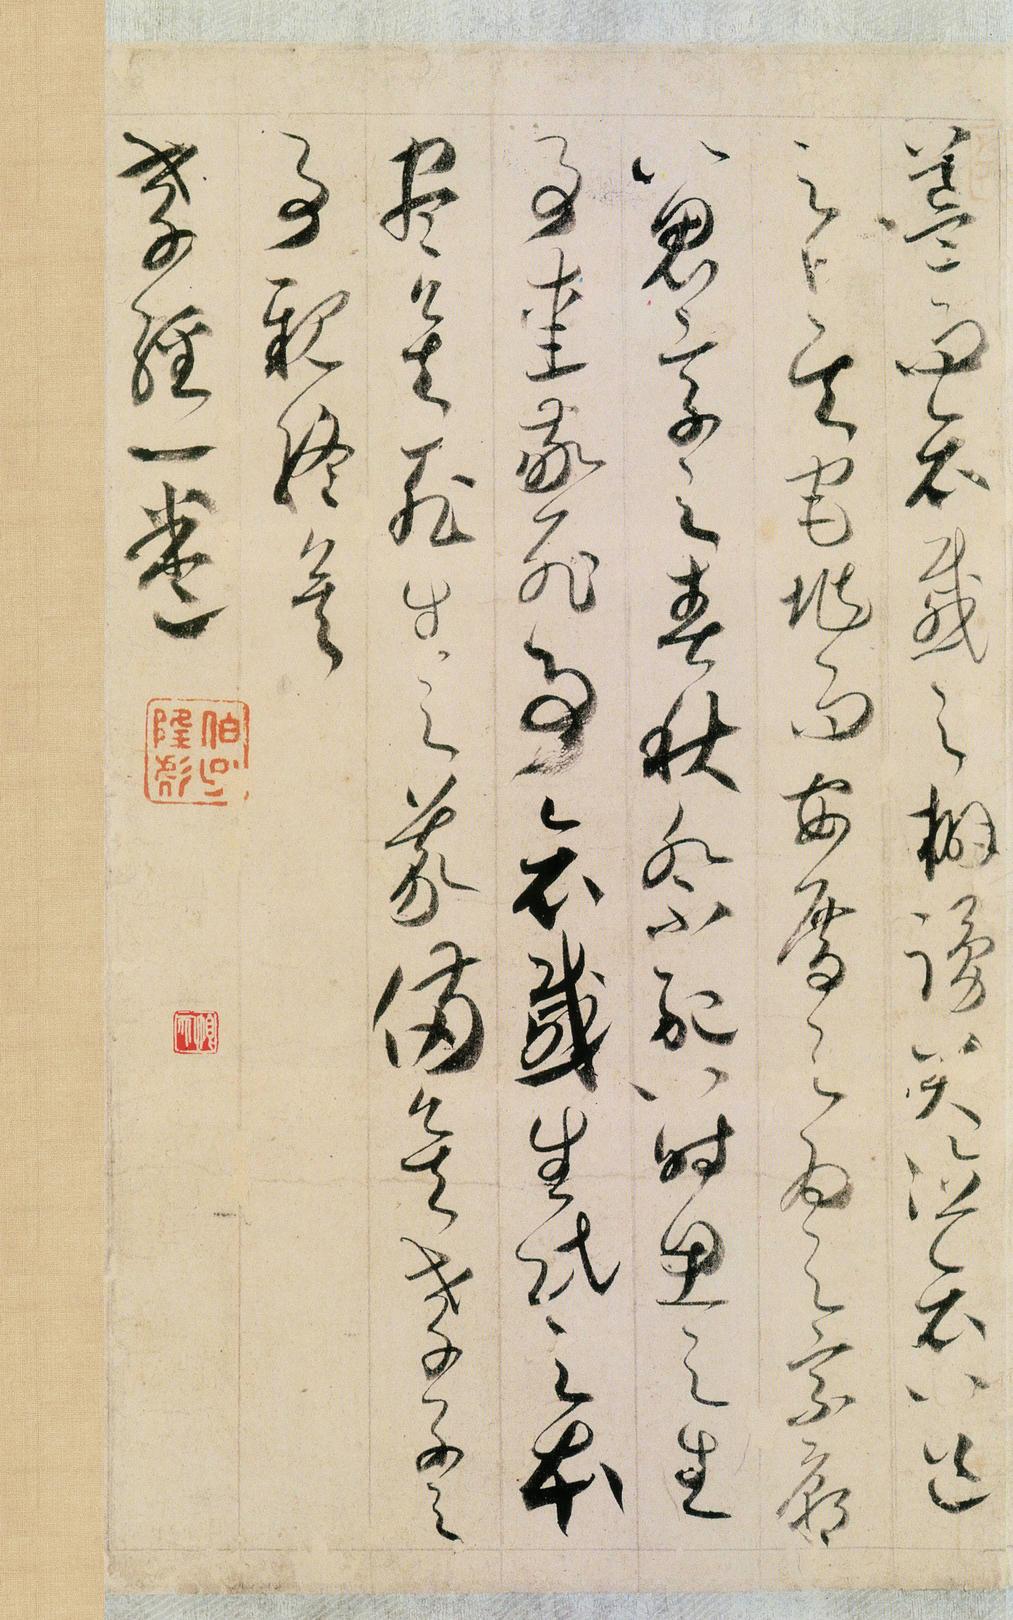 簋而哀慼之擗踊哭泣哀以送
之卜其宅垗而安厝之為之宗廟
以鬼享之春秋祭祀以時思之生
事愛敬死事哀慼生民之本
盡矣死生之義備矣孝子之
事親終矣
孝經一卷